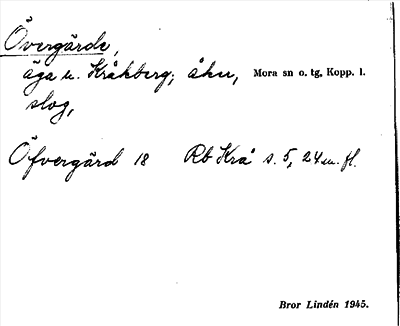 Övergärde,
äga u. Kråkberg; åker, Mora sn o. tg, Kopp. l.
slog,
Öfvergärd 18 Rb Krå s. 5, 24 m. fl.
Bror Lindén 1945.